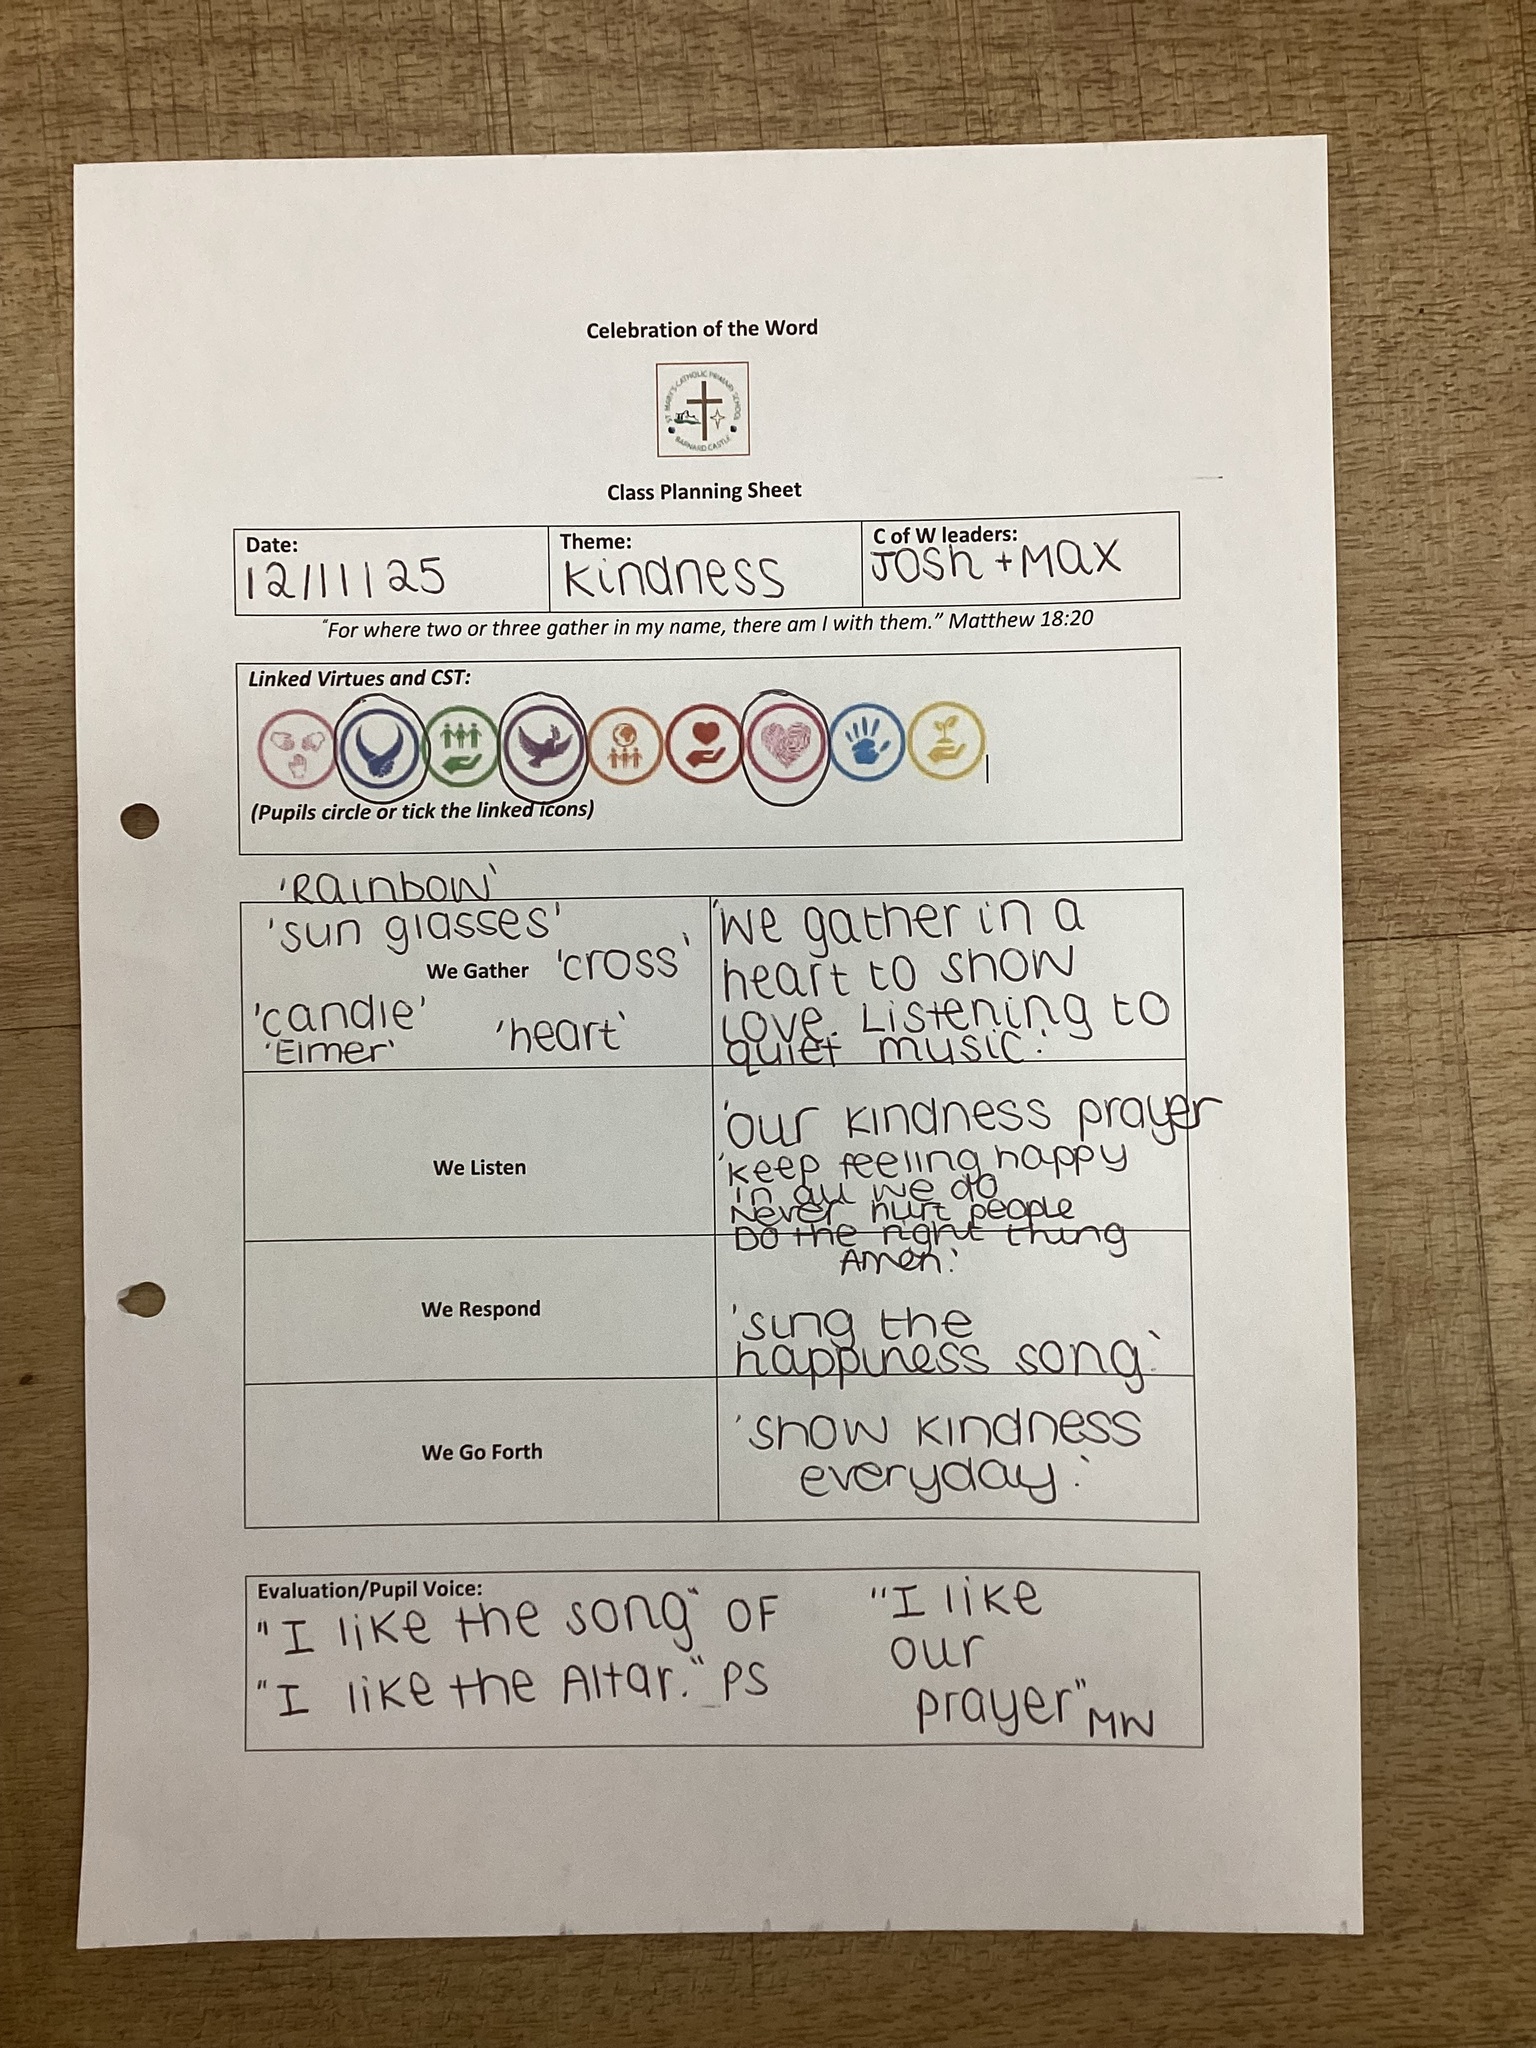 Celebration of the Word
ST MARY'S CATHOLIC PRIMARY SCHOOL
BARNARD CASTLE
Class Planning Sheet
Date:
12/11/25
Theme:
Kindness
C of W leaders:
Josh + Max
"For where two or three gather in my name, there am I with them." Matthew 18:20
Linked Virtues and CST:
(Pupils circle or tick the linked icons)
'Rainbow'
'sun glasses'
We Gather 'cross'
'candle'
'heart'
'Elmer'
'We gather in a
heart to show
love. Listening to
quiet music.'
We Listen
'our kindness prayer
'keep feeling happy
in all we do
Never hurt people
Do the right thing
Amen.'
We Respond
'sing the
happiness song.'
We Go Forth
'show kindness
everyday.'
Evaluation/Pupil Voice:
"I like the song" OF
"I like the Altar." PS
"I like
our
prayer" MW